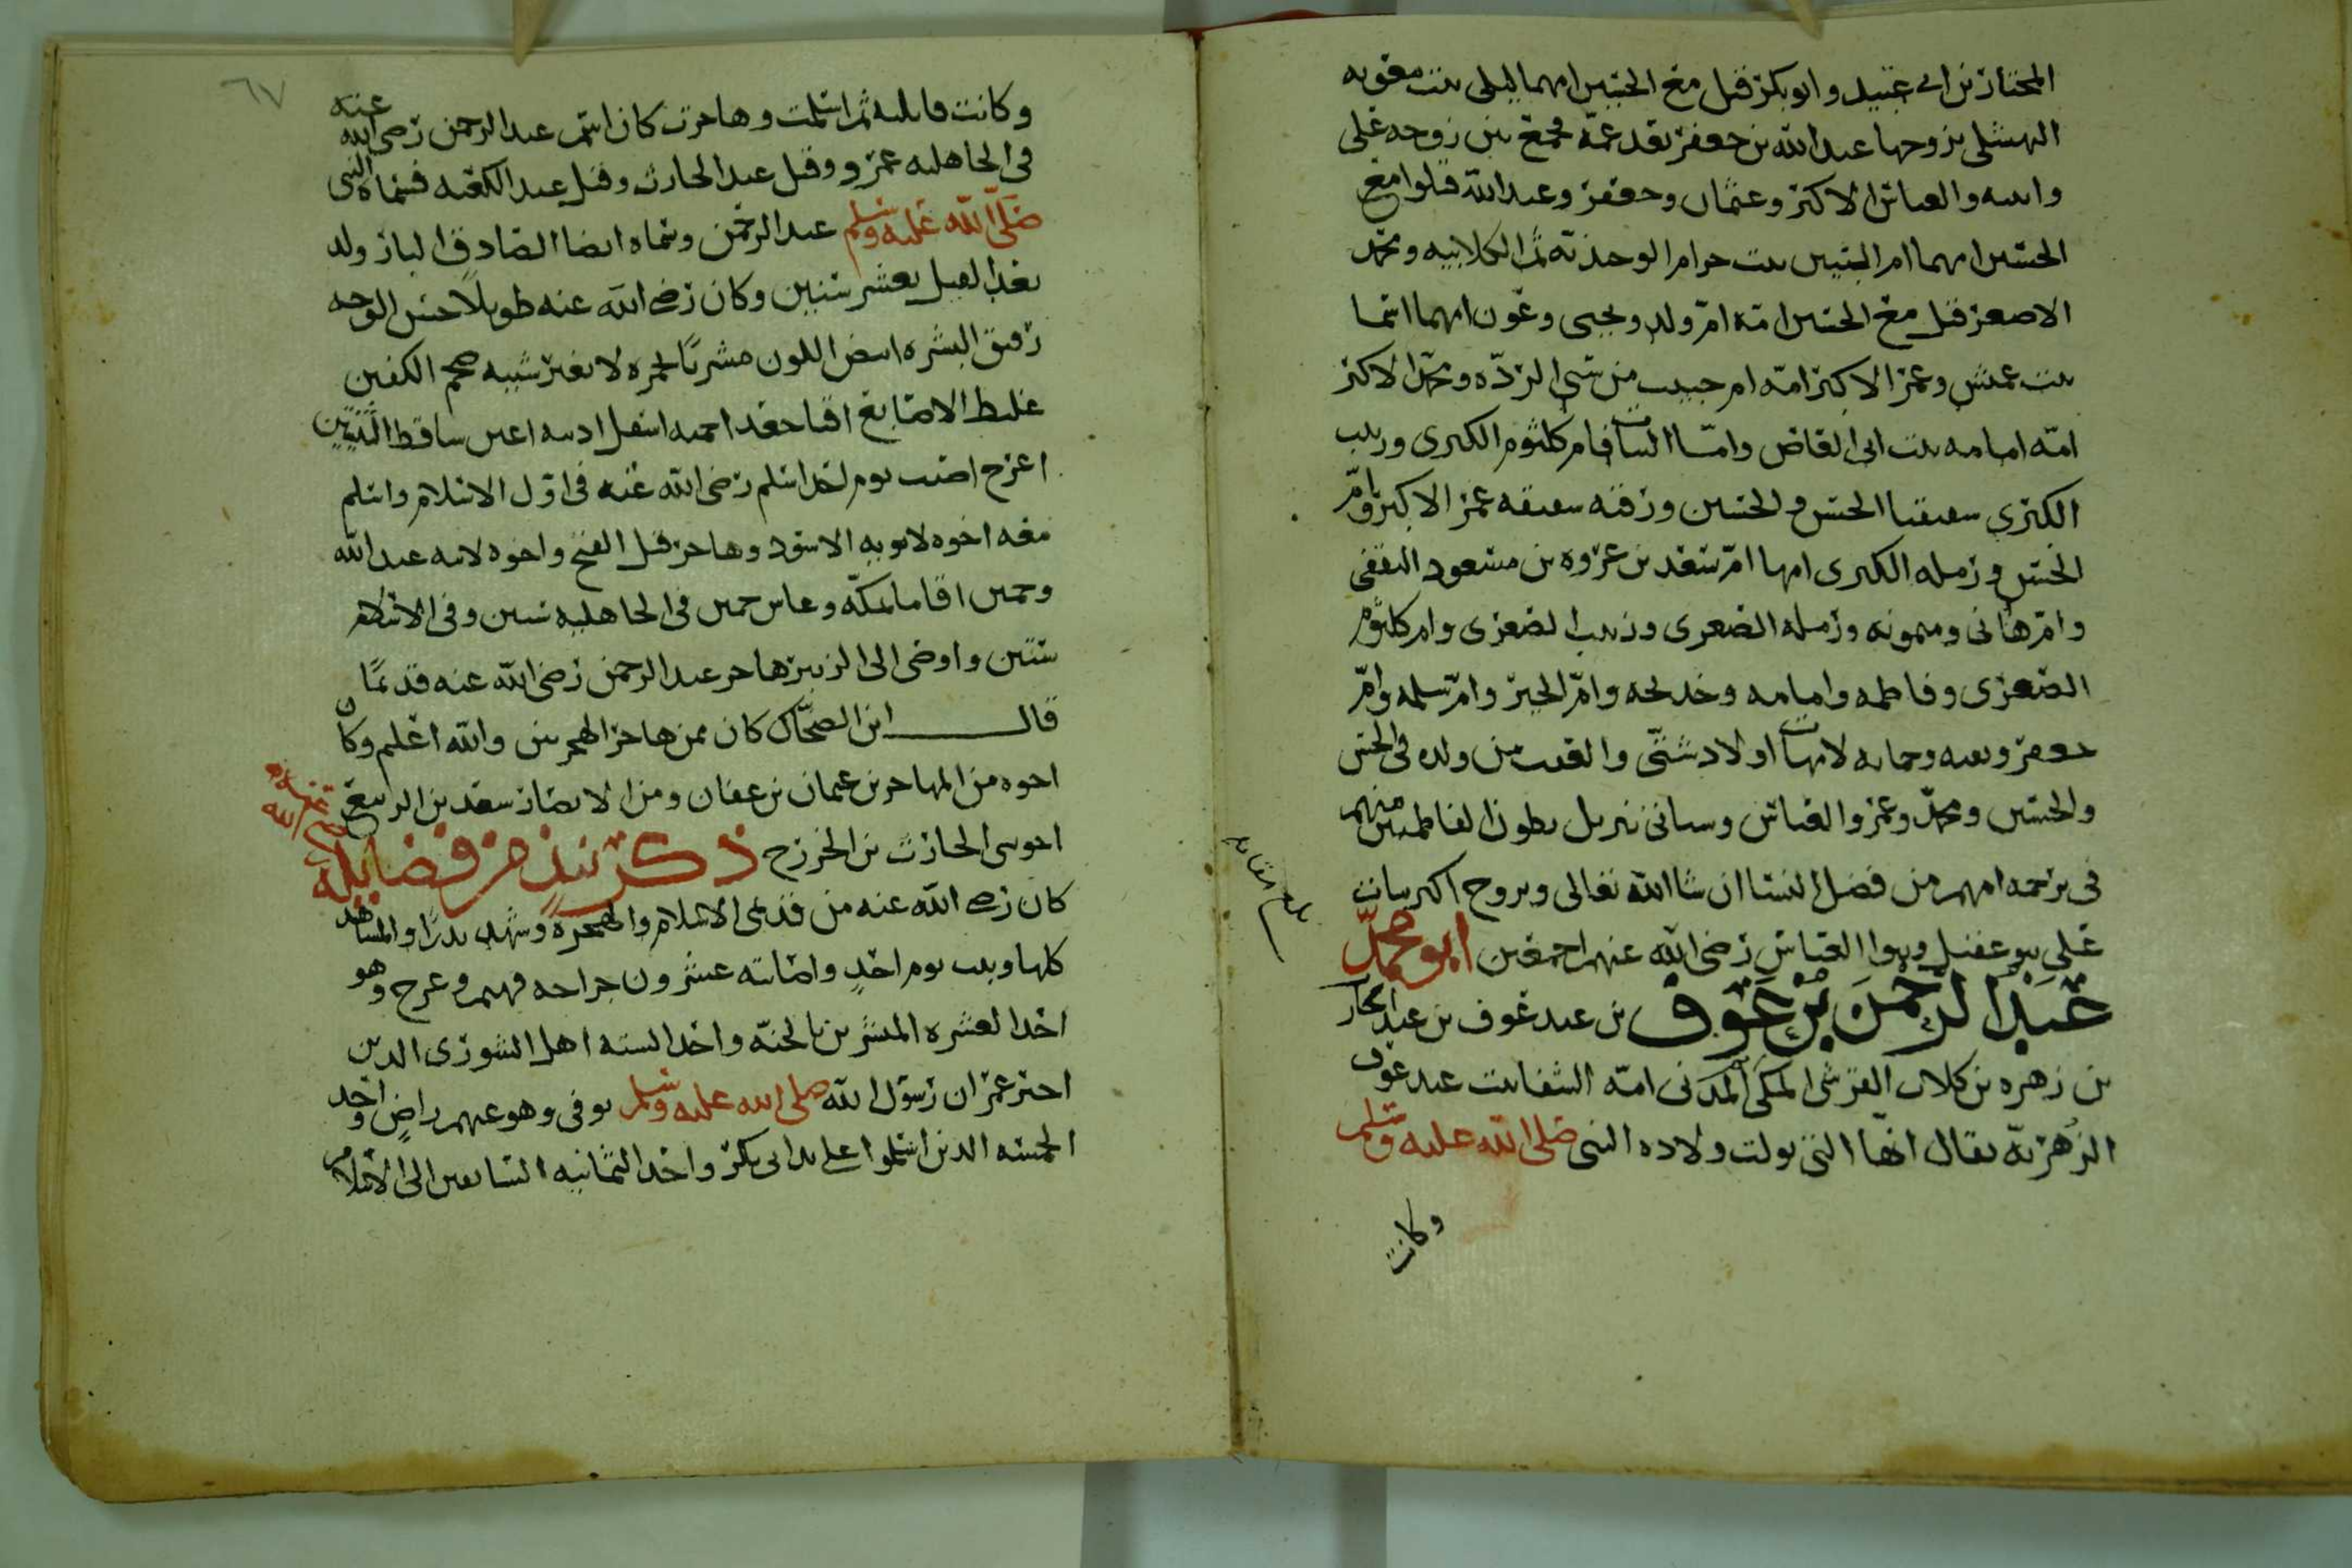 المختار بن ابي عبيد وابو بكر قتل مع الحسين امهما ليلى بنت معوبه
النهشلي تزوجها عبد الله بن جعفر بعد عمه فجمع بين زوجه علي
وابنته والعباس الاكبر وعثمان وجعفر وعبد الله قتلوا مع
الحسين امهما ام البنين بنت حرام الوحذيه ثم الكلابيه ومحمد
الاصغر قتل مع الحسين امه ام ولد ويحيى وعون امهما اسما
بنت عميس وعمر الاكبر امه ام حبيب من سبي الردّه ومحمد الاكبر
امّه امامه بنت ابي العاص وامّا البنات فام كلثوم الكبرى وزينب
الكبرى شقيقتا الحسن والحسين ورقيه شقيقه عمر الاكبر وامّ
الحسن ورمله الكبرى امها امّ سعد بن عروه بن مسعود الثقفي
وامّ هاني وميمونه ورمله الصغرى وزينب الصغرى وام كلثوم
الصغرى وفاطمه وامامه وخديجه وامّ الخير وامّ سلمه وامّ
جعفر ونفيسه وجمانه لامهات اولاد شتّى والعقب من ولده في الحسن
والحسين ومحمد وعمر والعباس وسياتي تنزيل بطون الفاطميين منهم
في ترجمه امهم من فضل النسا ان شا الله تعالى وتزوج اكثر بنات
علي بنو عقيل وبنوا العباس رضي الله عنهم اجمعين ابو محمّد
عَبْد الرَّحمنَ بن عَوف بن عبد عوف بن عبد الحارث
بن زهره بن كلاب القرشي المكي ثم المدني امّه الشفا بنت عبد عوف
الزهريّه يقال انّها التي تولت ولاده النبي صلى الله عليه وسلم
وكانت
بلغ مقابله
٦٧
وكانت قابلته ثم اسلمت وهاجرت كان اسم عبد الرحمن رضي الله عنه
في الجاهليه عمرو وقيل عبد الحارث وقيل عبد الكعبه فسماه النبي
صلى الله عليه وسلم عبد الرحمن وسماه ايضا الصادق البار ولد
بعد الفيل بعشر سنين وكان رضي الله عنه طويلاً حسن الوجه
رقيق البشره ابيض اللون مشربًا بحمره لا يغير شيبه ضخم الكفين
غليظ الاصابع اقنا جعد احمه اسفل اذنيه اعين ساقط الثنيتين
اعرج اصيب يوم احد اسلم رضي الله عنه في اوّل الاسلام واسلم
معه اخوه لابويه الاسود وهاجر قبل الفتح واخوه لابيه عبد الله
وحمنن اقاما بمكّه وعاش حمنن في الجاهليه ستين وفي الاسلام
ستين واوصى الى الزبير هاجر عبد الرحمن رضي الله عنه قديمًا
قال ابن الضحّاك كان ممن هاجر الهجرتين والله اعلم وكان
اخوه من المهاجرين عثمان بن عفان ومن الانصار سعد بن الربيع
اخو بني الحارث بن الخزرج ذكر نبذ من فضايله رضي الله عنه
كان رضي الله عنه من قديمي الاسلام والهجرة وشهد بدرًا والمشاهد
كلها وثبت يوم احدٍ واصابته عشرون جراحه فهتم وعرج وهو
احد العشره المبشرين بالجنّه واحد السته اهل الشورى الذين
اخبر عمر ان رسول الله صلى الله عليه وسلم توفي وهو عنهم راضٍ واحد
الخمسه الذين اسلموا على يد ابي بكر واحد الثمانيه السابقين الى الاسلام